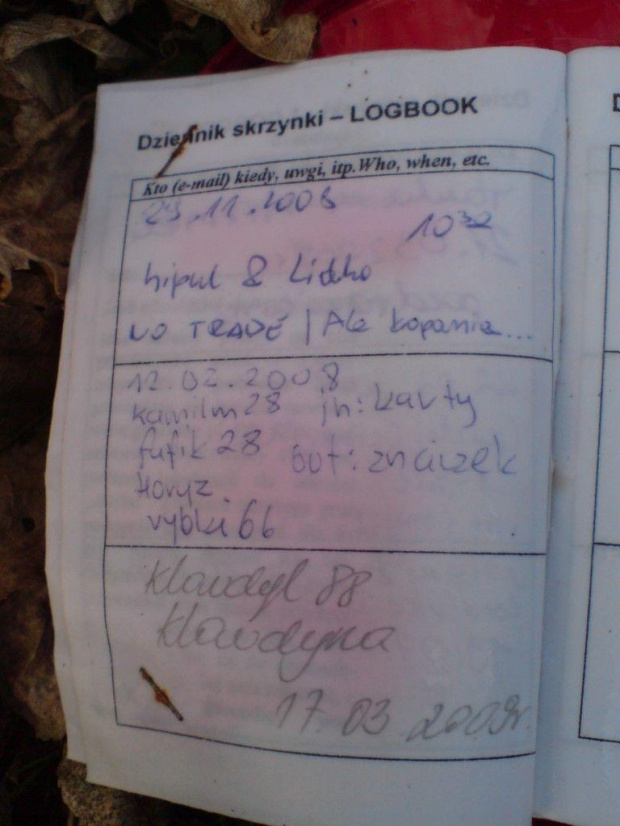 Dziennik skrzynki – LOGBOOK
Kto (e-mail) kiedy, uwgi, itp. Who, when, etc.
23.11.2008
10³²
hipul & Lidko
NO TRADE | Ale kopania...
12.02.2008
kamilm28 in: karty
fufik28 out: znaczek
Horyz.
rybki66
klaudyl 88
klaudyna
17 03 2009r